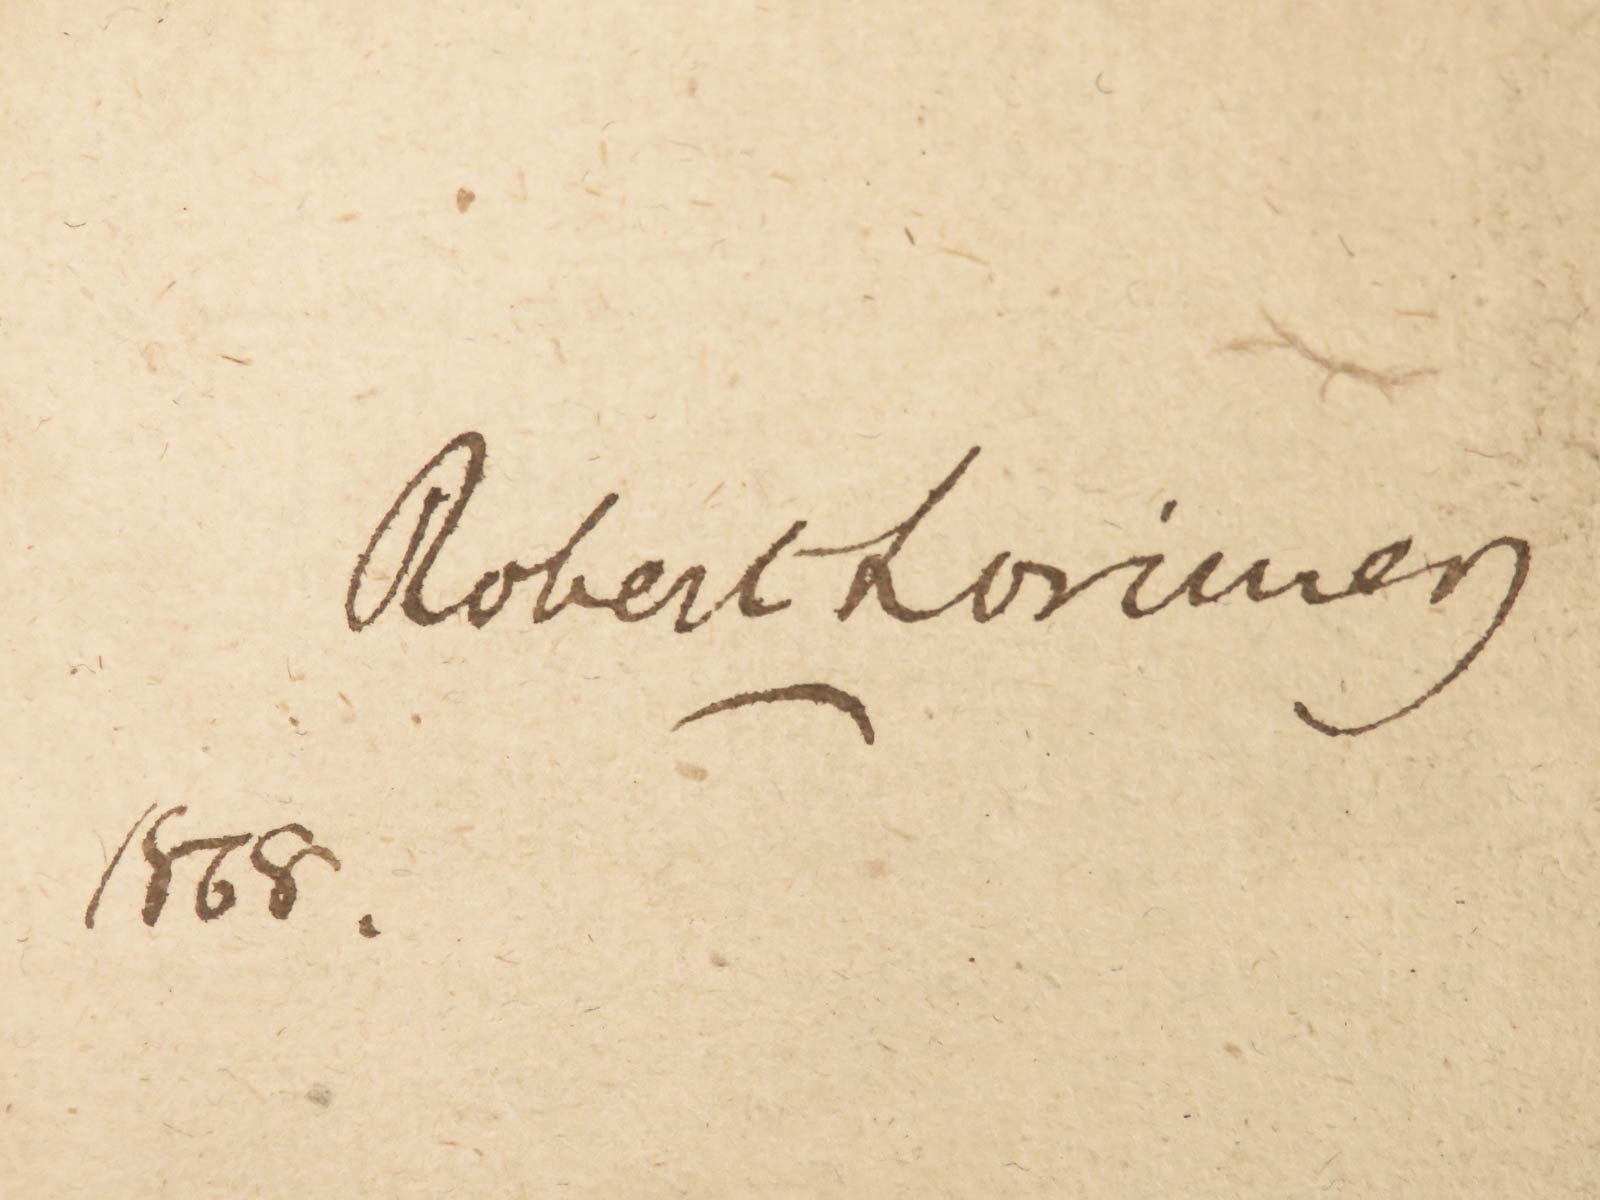 Robert Lorimer
1868.